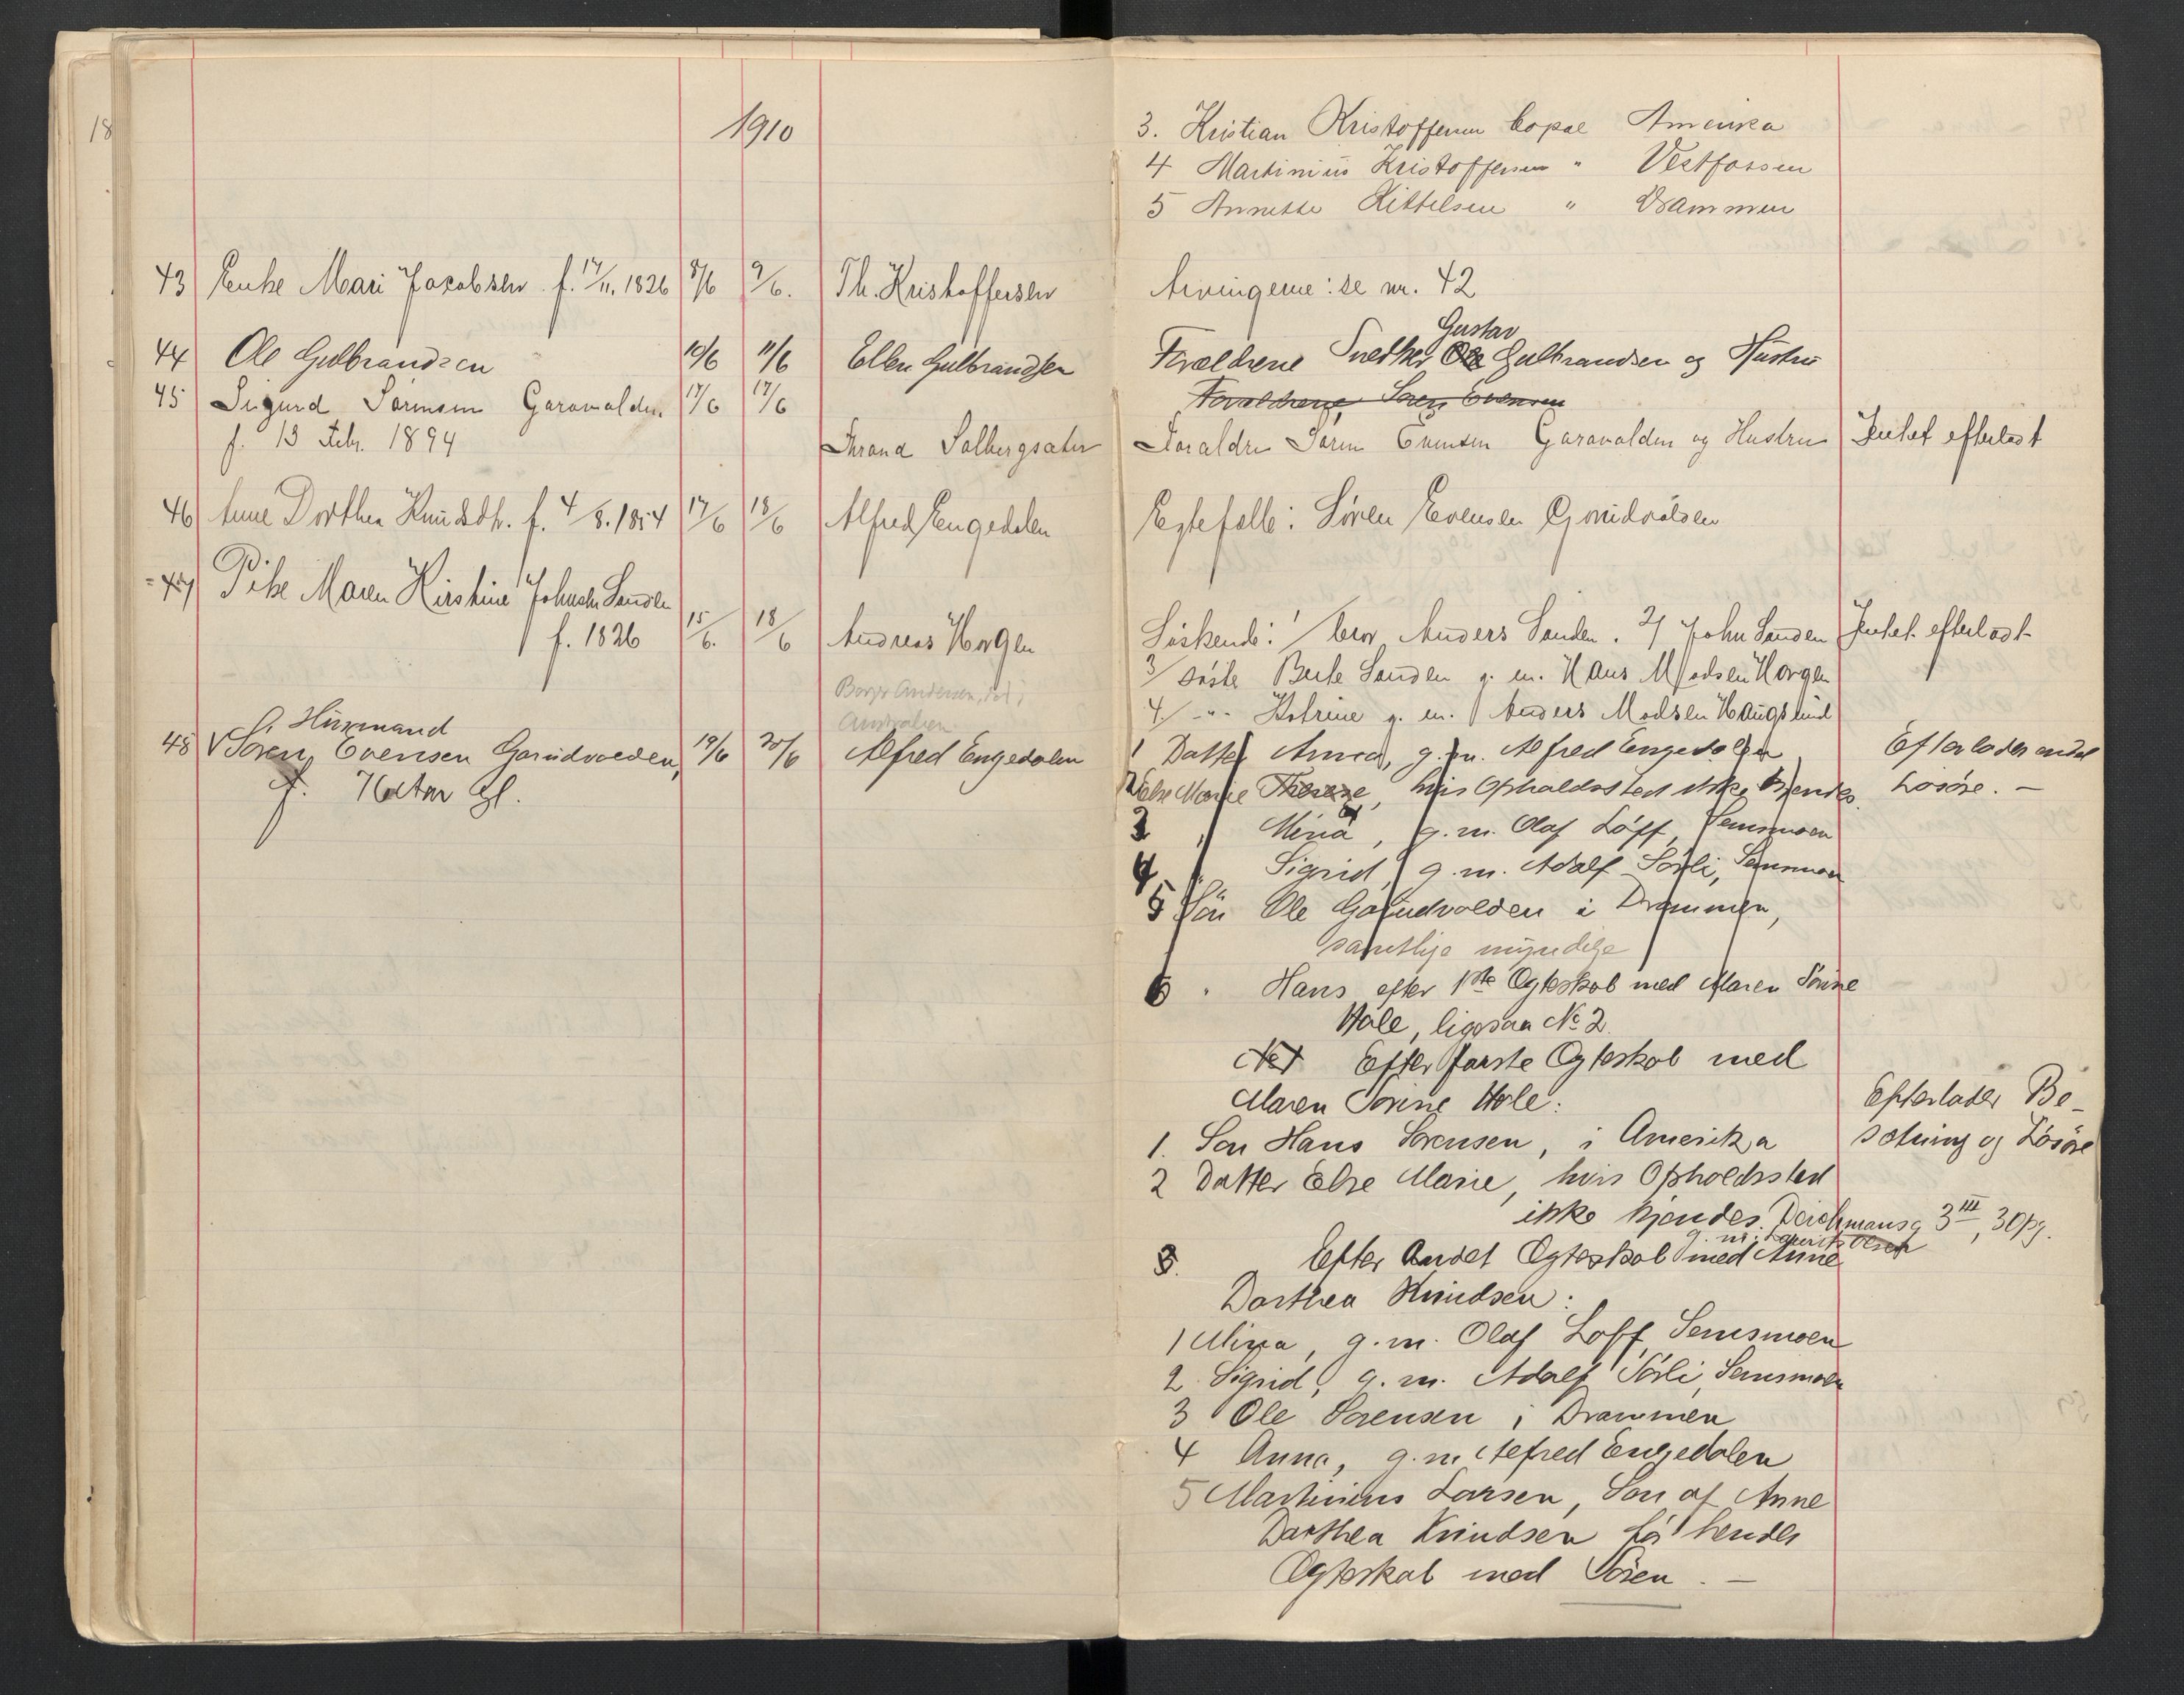 18
1910
43 Enke Mari Jacobsen f. 17/11. 1826 8/6 9/6. Th. Kristoffersen
44 Ole Gulbrandsen 10/6 11/6 Ellen Gulbrandsen
45 Sigurd Sørensen 17/6 17/6
f. 13 Febr. 1894
46 Anne Dorthea f. 4/8. 1854 17/6 18/6 Alfred Engedalen
47 Pike Maren Kirstine Johnsdr. Sanden
f. 1826 15/6. 18/6 Andreas Horgen
Borger Andersen,
Australien
Husmand
48 Søren Evensen Garudvolden, 19/6 20/6 Alfred Engedalen
Gl.
3. Kristian Kristoffersen Copal Amerika
4 Martinius Kristoffersen " Vestfossen
5 Annette Kittelsen " Drammen
Arvingerne: se nr. 42
Gustav
Forældrene Snedker Ole Gulbrandsen og Hustru
Forældrene, Søren Evensen
Foraldre Sørin Evensen og Hustru Intet efterladt
Egtefelle: Søren Evensen
Søskende: 1/ bror Anders Sanden. 2/ John Sanden Intet efterladt
3/ søster Berte Sanden g. m. Hans Madsen Horgen
4/ -"- Katrine g. m. Anders Madsen
1 Datter Anna, g. m. Alfred Engedalen Efterlader endel
2 Else Marie Therese, hvis Opholdssted ikke kjendes. Løsøre. -
3 " Mina, g. m. Olaf Loff, Semsmoen
4 " Sigrid, g. m. Adolf Sørli, Semsmoen
5 Søn Ole Garudvolden i Drammen,
samtlige myndige
6 " Hans efter 1ste Ægteskab med Maren Sørine
Hole, ligesaa No 2.
Efter første Ægteskab med
Maren Sørine Hole: Efterlader Be-
1. Søn Hans Sørensen, i Amerika sætning og Løsøre
2 Datter Else Marie, hvis Opholdssted
ikke kjendes. Deichmansg 3 III, 30 pg.
g. m. Laurits Olsen
3. Efter Andet Ægteskab med Anne
Dorthea Knudsen:
1 Mina, g. m. Olaf Loff, Semsmoen
2 Sigrid, g. m. Adolf Sørli, Semsmoen
3 Ole Sørensen i Drammen
4 Anna, g. m. Alfred Engedalen
5 Martinius Larsen, Søn af Anne
Dorthea Knudsen før hendes
Ægteskab med Søren. -